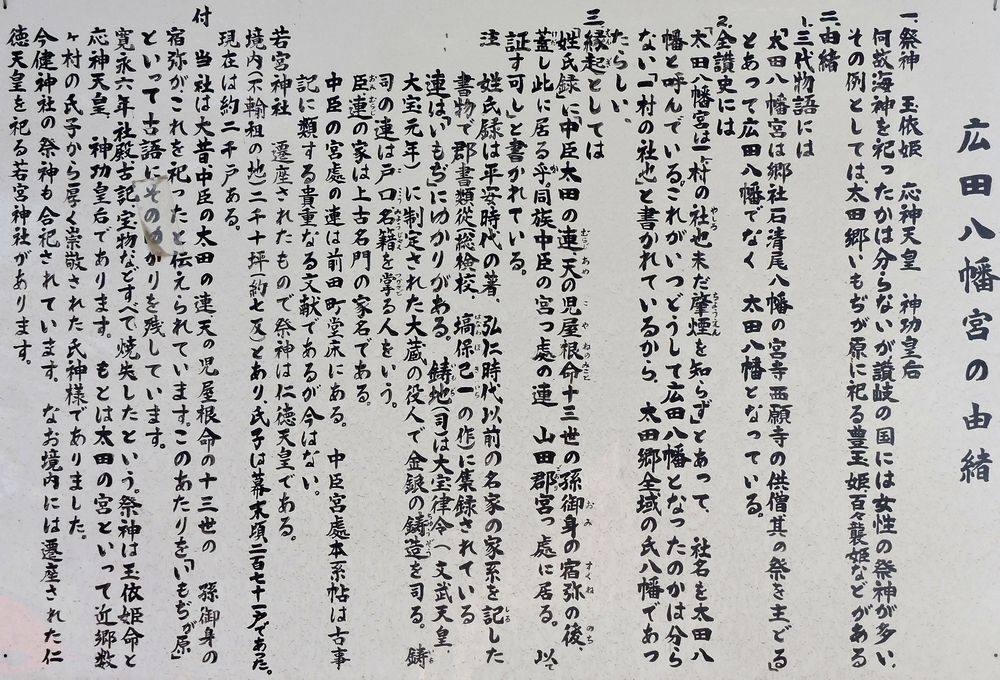 広田八幡宮の由緒
一、祭神　玉依姫　応神天皇　神功皇后
何故海神を祀ったかは分らないが讃岐の国には女性の祭神が多い、
その例としては太田郷、いもぢが原に祀る豊玉姫百々襲姫などがある
二、由緒
1.三代物語には
「太田八幡宮は郷社石清尾八幡の宮寺西願寺の供僧其の祭を主どる」
とあって広田八幡でなく　太田八幡となっている。
2.全讃史には
「太田八幡宮は一村の社也未だ肇煙を知らず」とあって、社名を太田八
幡と呼んでいる。これがいつどうして広田八幡となったのかは分ら
ない「一村の社也」と書かれているから、太田郷全域の氏八幡であっ
たらしい。
三、縁起としては
「姓氏録」に「中臣太田の連、天の児屋根命十三世の孫御身の宿弥の後、
蓋し此に居る乎。同族中臣の宮っ處の連　山田郡宮っ處に居る。以て
証す可し」と書かれている。
註　姓氏録は平安時代の著、弘仁時代以前の名家の家系を記した
書物で郡書類従(総検校、塙保己一の作)に集録されている
連は「いもぢ」にゆかりがある。鋳地(司)は大宝律令(文武天皇、
大宝元年)に制定された大蔵の役人で金銀の鋳造を司る。鋳
司の連は戸口名籍を掌る人をいう。
臣連の連の家は上古名門の家名である。
中臣の宮處の連は前田町堂床にある。中臣宮處本系帖は古事
記に類する貴重なる文献であるが今はない。
若宮神社　遷座されたもので祭神は仁徳天皇である。
境内(不輸租の地)二千十坪(約七反)とあり、氏子は幕末頃二百七十一戸であった。
現在は約二千戸ある。
付　当社は大昔中臣の太田の連天の児屋根命の十三世の　孫御身の
宿弥がこれを祀ったと伝えられています。このあたりを「いもぢが原」
といって古語にそのゆかりを残しています。
寛永六年社殿古記、宝物などすべて焼失したという。祭神は玉依姫命と
応神天皇、神功皇后であります。もとは太田の宮といって近郷数
ヶ村の氏子から厚く崇敬された氏神様でありました。
今健神社の祭神も合祀されています。なお境内には遷座された仁
徳天皇を祀る若宮神社があります。